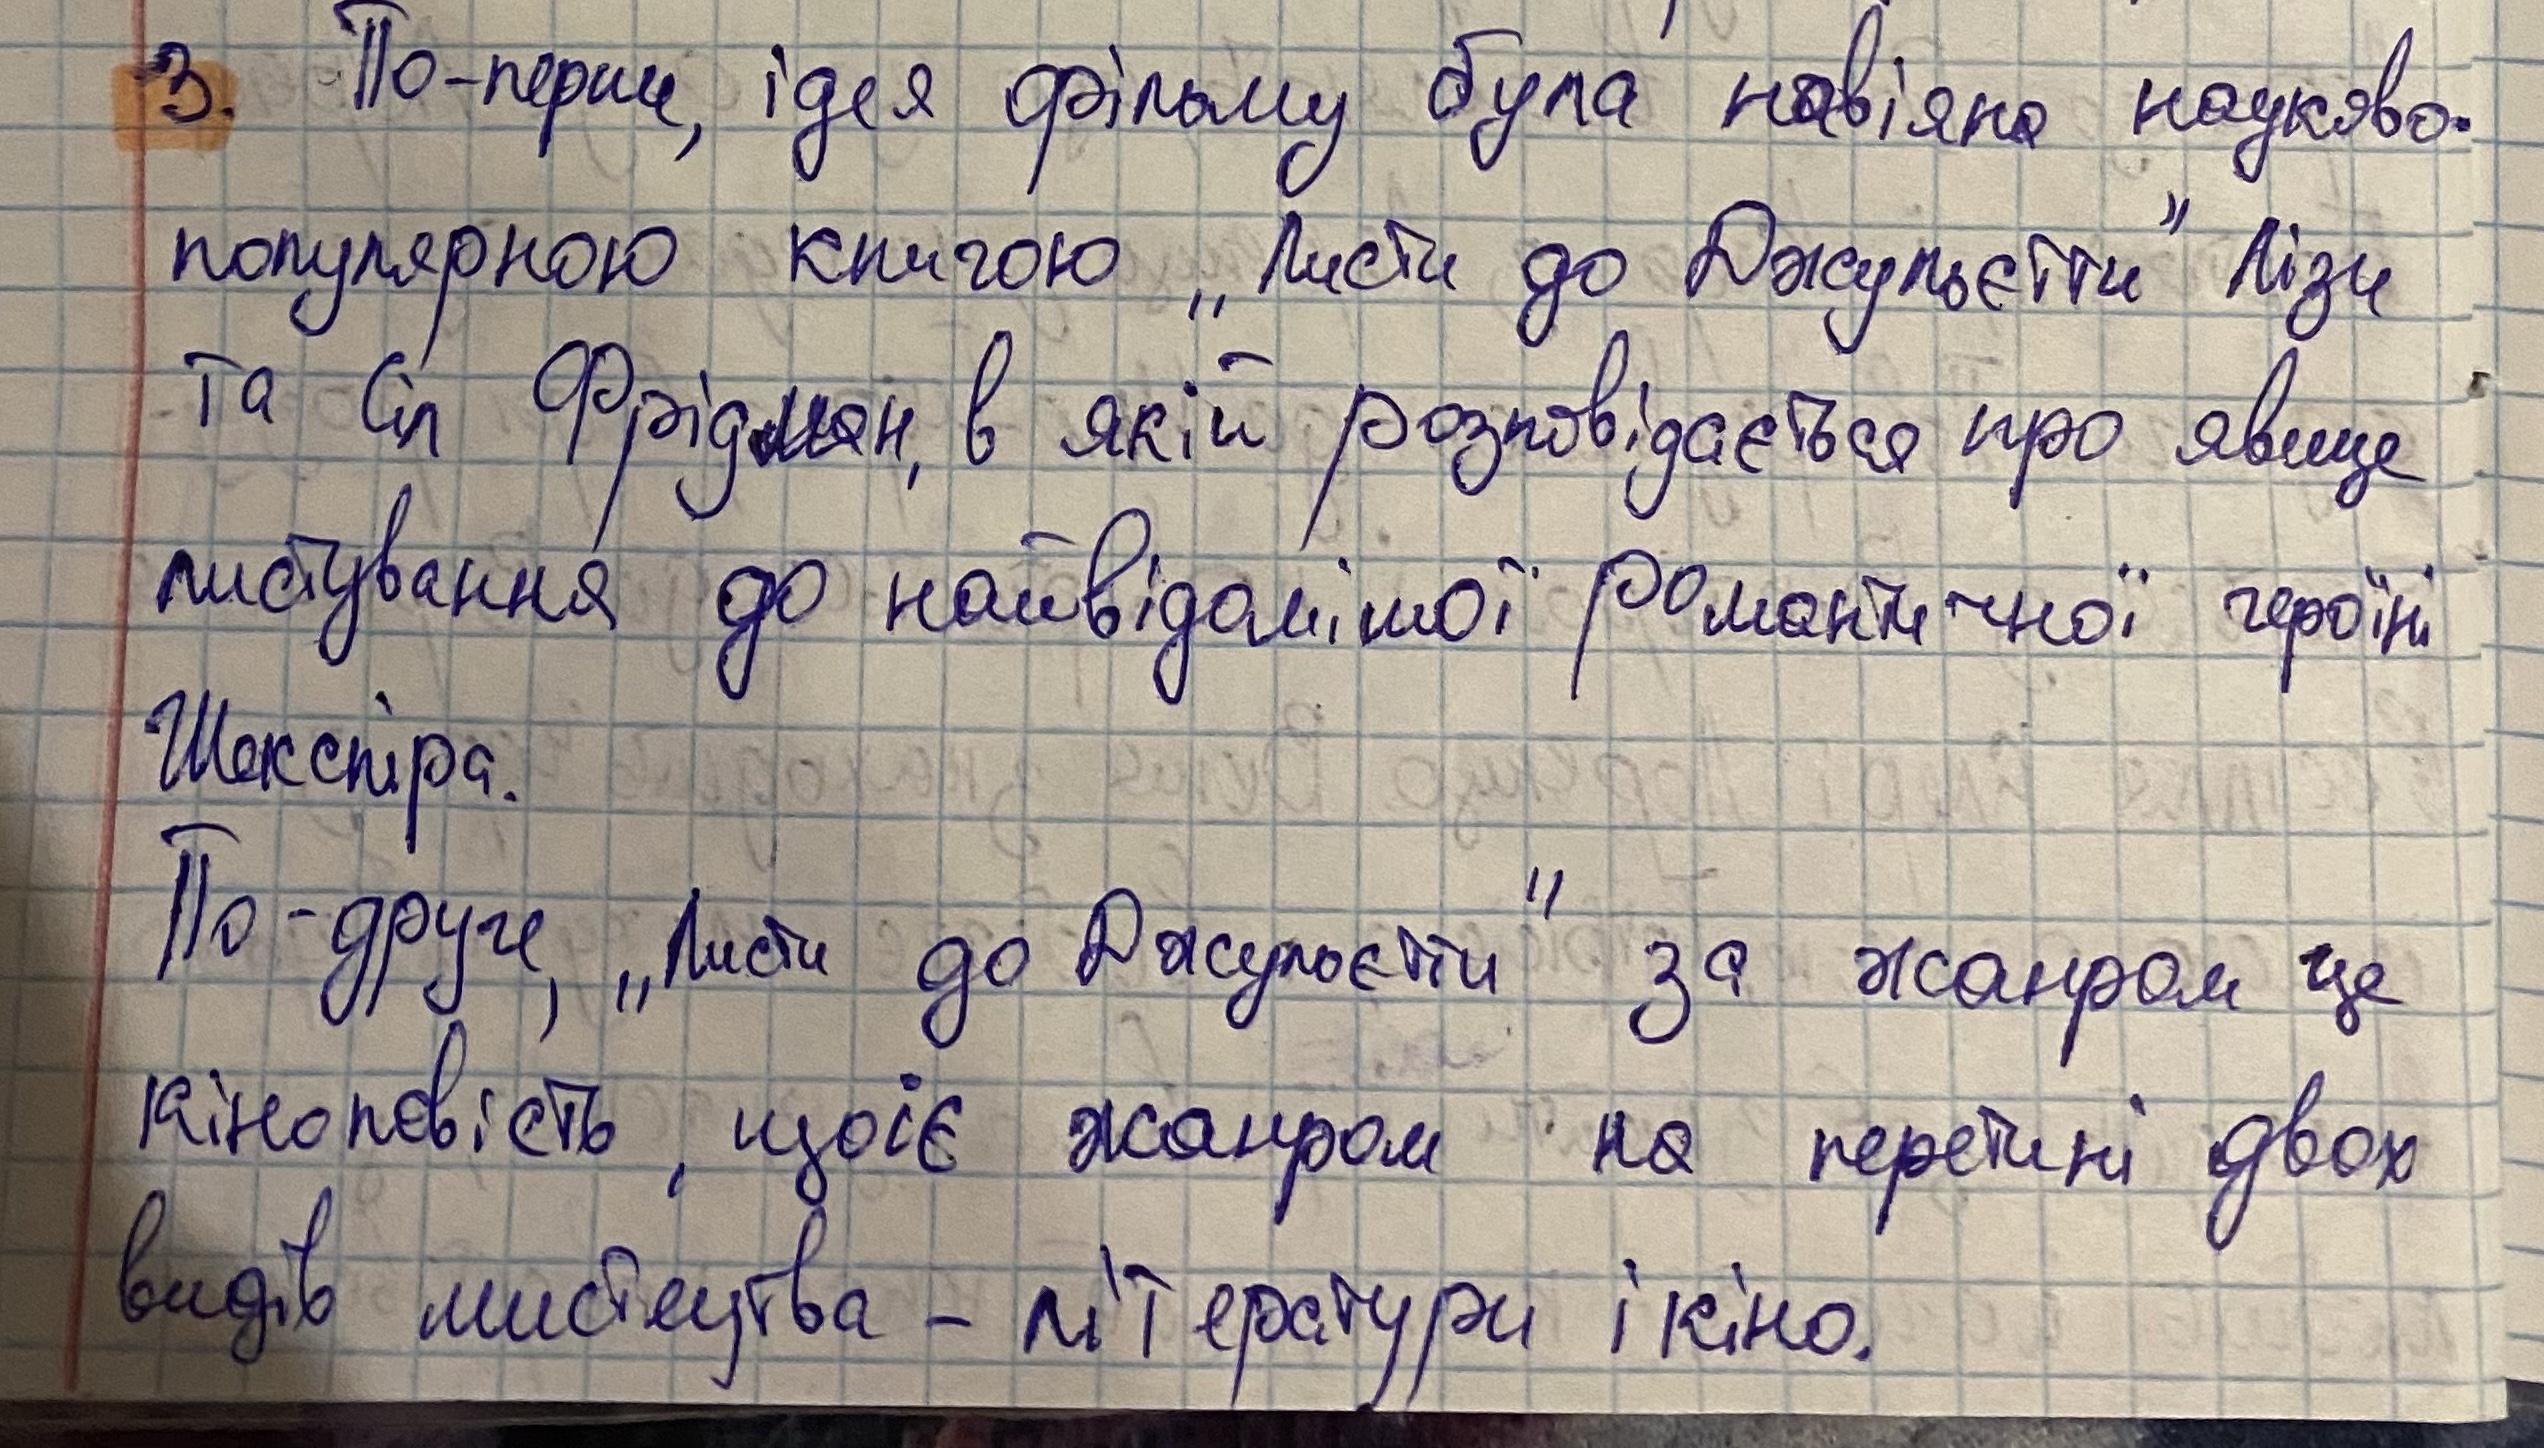 3. По-перше, ідея фільму була навіяна науково-
популярною книгою „Листи до Джульєтти" Лізи
та Сіл Фрідман, в якій розповідається про явище
листування до найвідомішої романтичної героїні
Шекспіра.
По-друге, „Листи до Джульєтти" за жанром це
кіноповість, що є жанром на перетині двох
видів мистецтва - літератури і кіно.